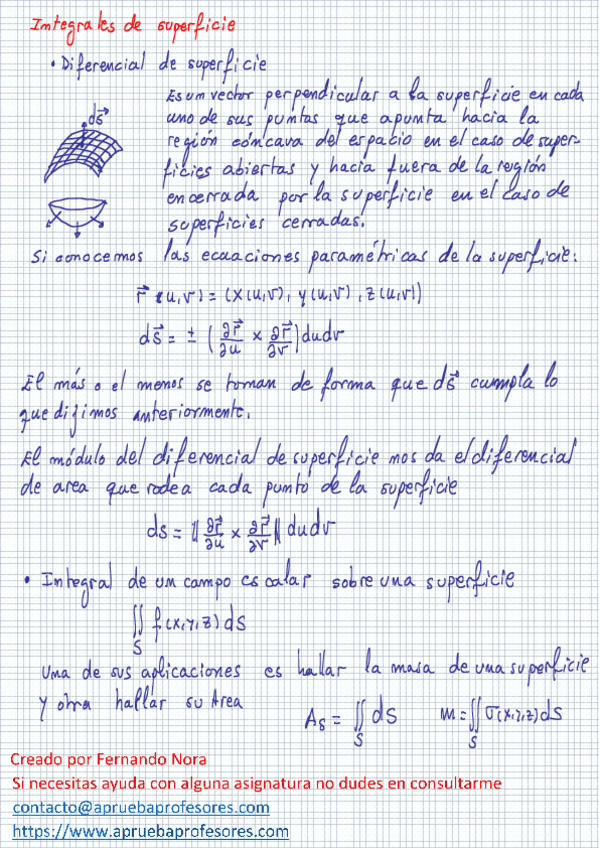 Integrales de superficie
• Diferencial de superficie
Es un vector perpendicular a la superficie en cada
uno de sus puntos que apunta hacia la
región cóncava del espacio en el caso de super-
ficies abiertas y hacia fuera de la región
encerrada por la superficie en el caso de
superficies cerradas.
ds⃗
Si conocemos las ecuaciones paramétricas de la superficie:
r⃗ (u,v) = (x(u,v), y(u,v), z(u,v))
ds⃗ = ± (∂r⃗/∂u × ∂r⃗/∂v) du dv
El más o el menos se toman de forma que ds⃗ cumpla lo
que dijimos anteriormente.
El módulo del diferencial de superficie nos da el diferencial
de area que rodea cada punto de la superficie
ds = ‖∂r⃗/∂u × ∂r⃗/∂v‖ du dv
• Integral de un campo escalar sobre una superficie
∬_S f(x,y,z) ds
Una de sus aplicaciones es hallar la masa de una superficie
y otra hallar su Area
A_s = ∬_S ds m = ∬_S σ(x,y,z) ds
Creado por Fernando Nora
Si necesitas ayuda con alguna asignatura no dudes en consultarme
contacto@apruebaprofesores.com
https://www.apruebaprofesores.com